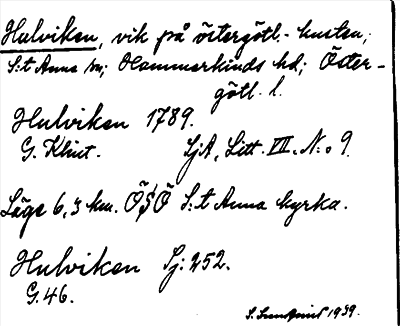 Hulviken, vik på östergötl.-kusten,
S:t Anna sn; Hammarkinds hd; Öster-
götl. l.
Hulviken 1789.
G. Klint. SjA, Litt. VII. N:o 9.
Läge 6,3 km. ÖSÖ S:t Anna kyrka.
Hulviken Sj: 252.
G. 46.
S. Sundquist 1939.